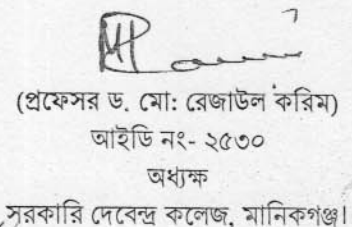 (প্রফেসর ড. মো: রেজাউল করিম)
আইডি নং- ২৫৩০
অধ্যক্ষ
সরকারি দেবেন্দ্র কলেজ, মানিকগঞ্জ।